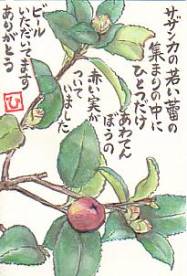 サザンカの若い蕾の
集まりの中に
ひとつだけ
あわてん
ぼうの
赤い実が
ついて
いました
ビール
いただいてます
ありがとう
ひ